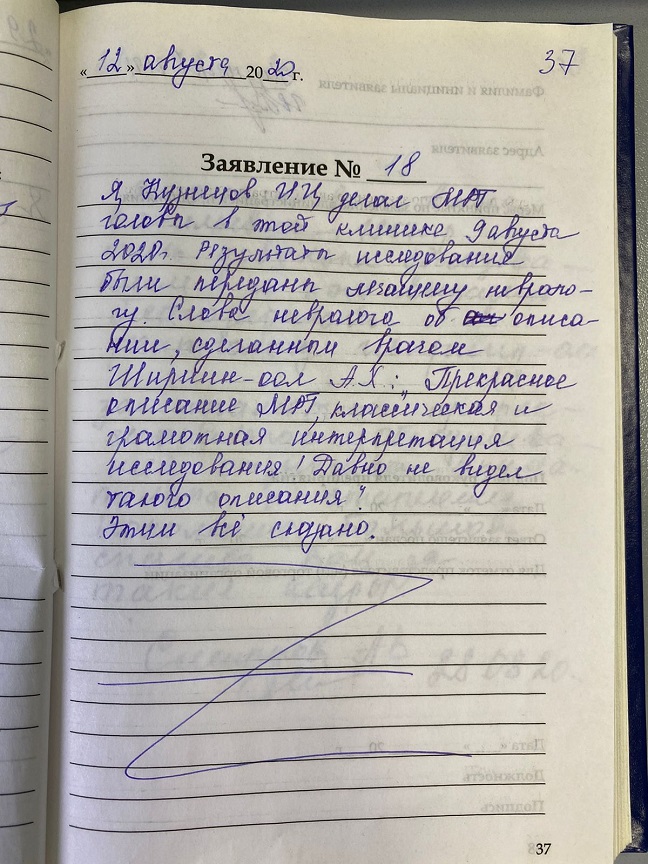 « 12 » августа 20 20 г.
37
Заявление № 18
Я, Кузнецов И.И, делал МРТ
головы в этой клинике 9 августа
2020г. Результаты исследования
были переданы лечащему невроло-
гу. Слова невролога об описа-
нии, сделанным врачом
Ширшин-оол А.Х.: „Прекрасное
описание МРТ, классическая и
грамотная интерпретация
исследования! Давно не видел
такого описания".
Этим всё сказано.
37